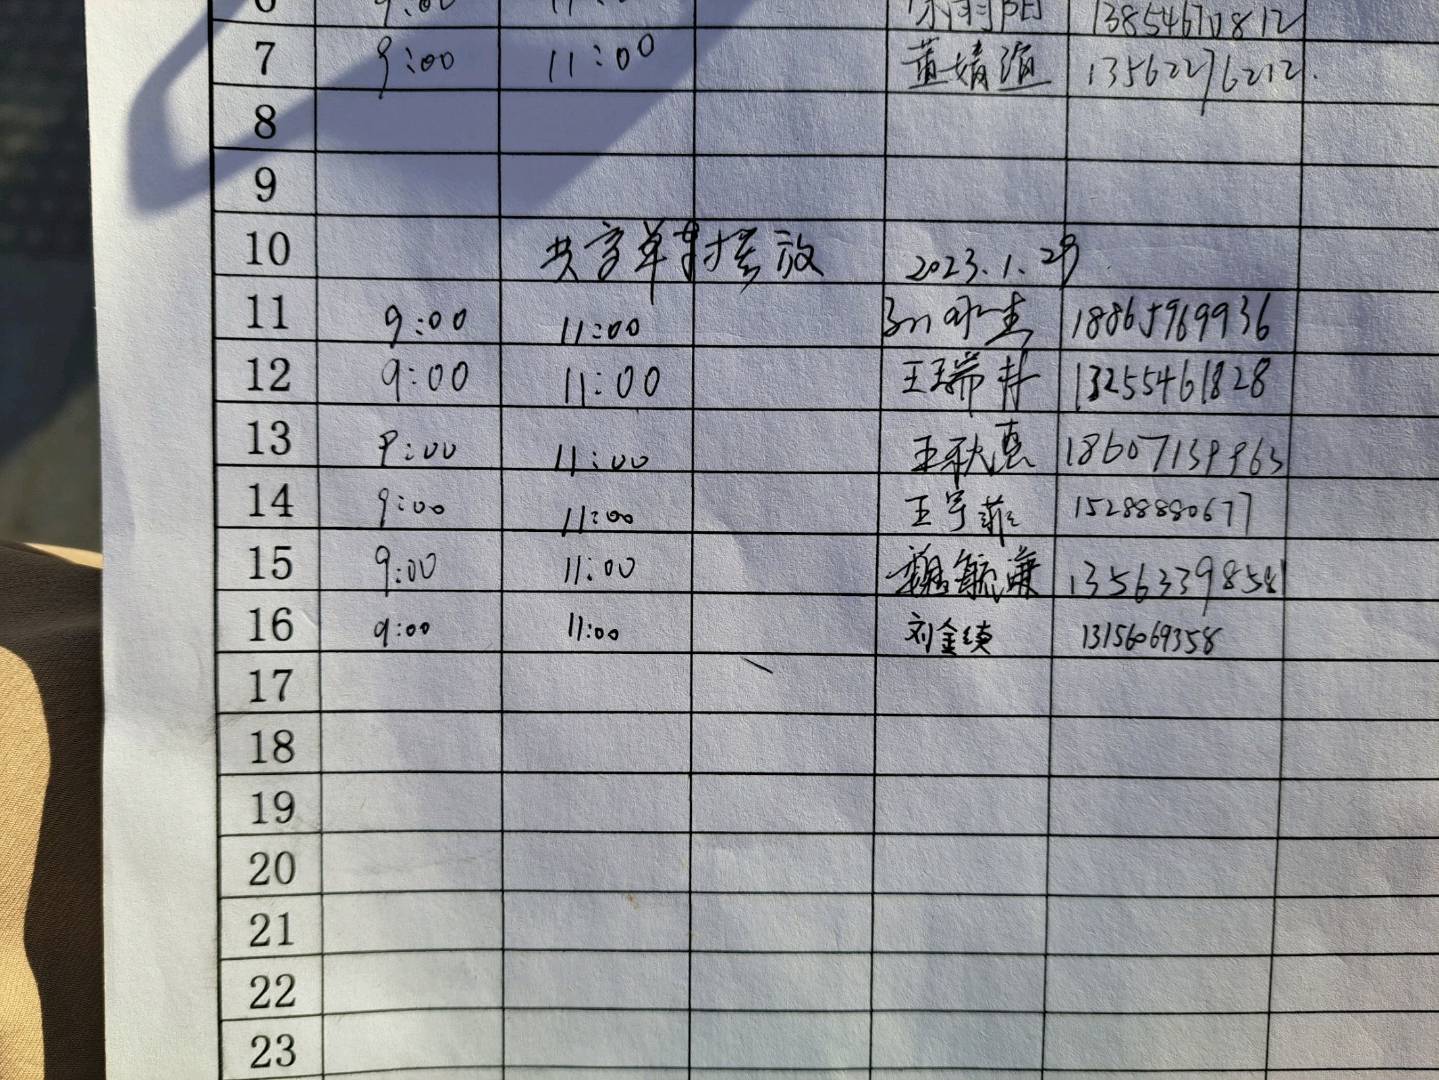 6 9:00 13854670812
7 9:00 11:00 董婧瑄 13562276212.
8
9
10 共享单车摆放 2023.1.29
11 9:00 11:00 18865969936
12 9:00 11:00 王瑞井 13255461828
13 9:00 11:00 王秋惠 18607139963
14 9:00 11:00 王宇菲 15288880677
15 9:00 11:00 13563398581
16 9:00 11:00 刘金续 13156069358
17
18
19
20
21
22
23